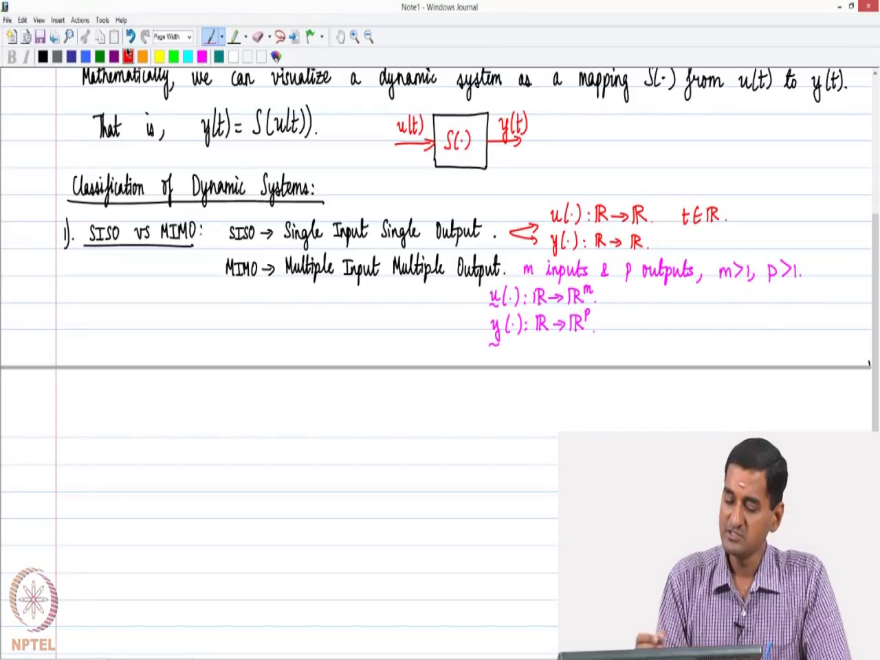 Note1 - Windows Journal
File Edit View Insert Actions Tools Help
Page Width
B I
Mathematically, we can visualize a dynamic system as a mapping S(·) from u(t) to y(t).
That is, y(t) = S(u(t)). u(t) S(·) y(t)
Classification of Dynamic Systems:
1). SISO vs MIMO: SISO → Single Input Single Output. u(·): ℝ → ℝ. t ∈ ℝ.
y(·): ℝ → ℝ.
MIMO → Multiple Input Multiple Output. m inputs & p outputs, m>1, p>1.
u(·): ℝ → ℝᵐ.
y(·): ℝ → ℝᵖ.
NPTEL